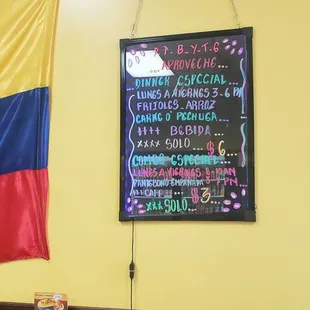 P.P.B.Y.T.G
APROVECHE...
DINNER ESPECIAL
LUNES A VIERNES 3-6 PM
FRIJOLES-ARROZ
CARNE O PECHUGA
++++ BEBIDA
xxxx SOLO... $6
COMBO ESPECIAL
LUNES A VIERNES
PANDEBONO EMPANADA PM
CAFE
$3
xxx SOLO...